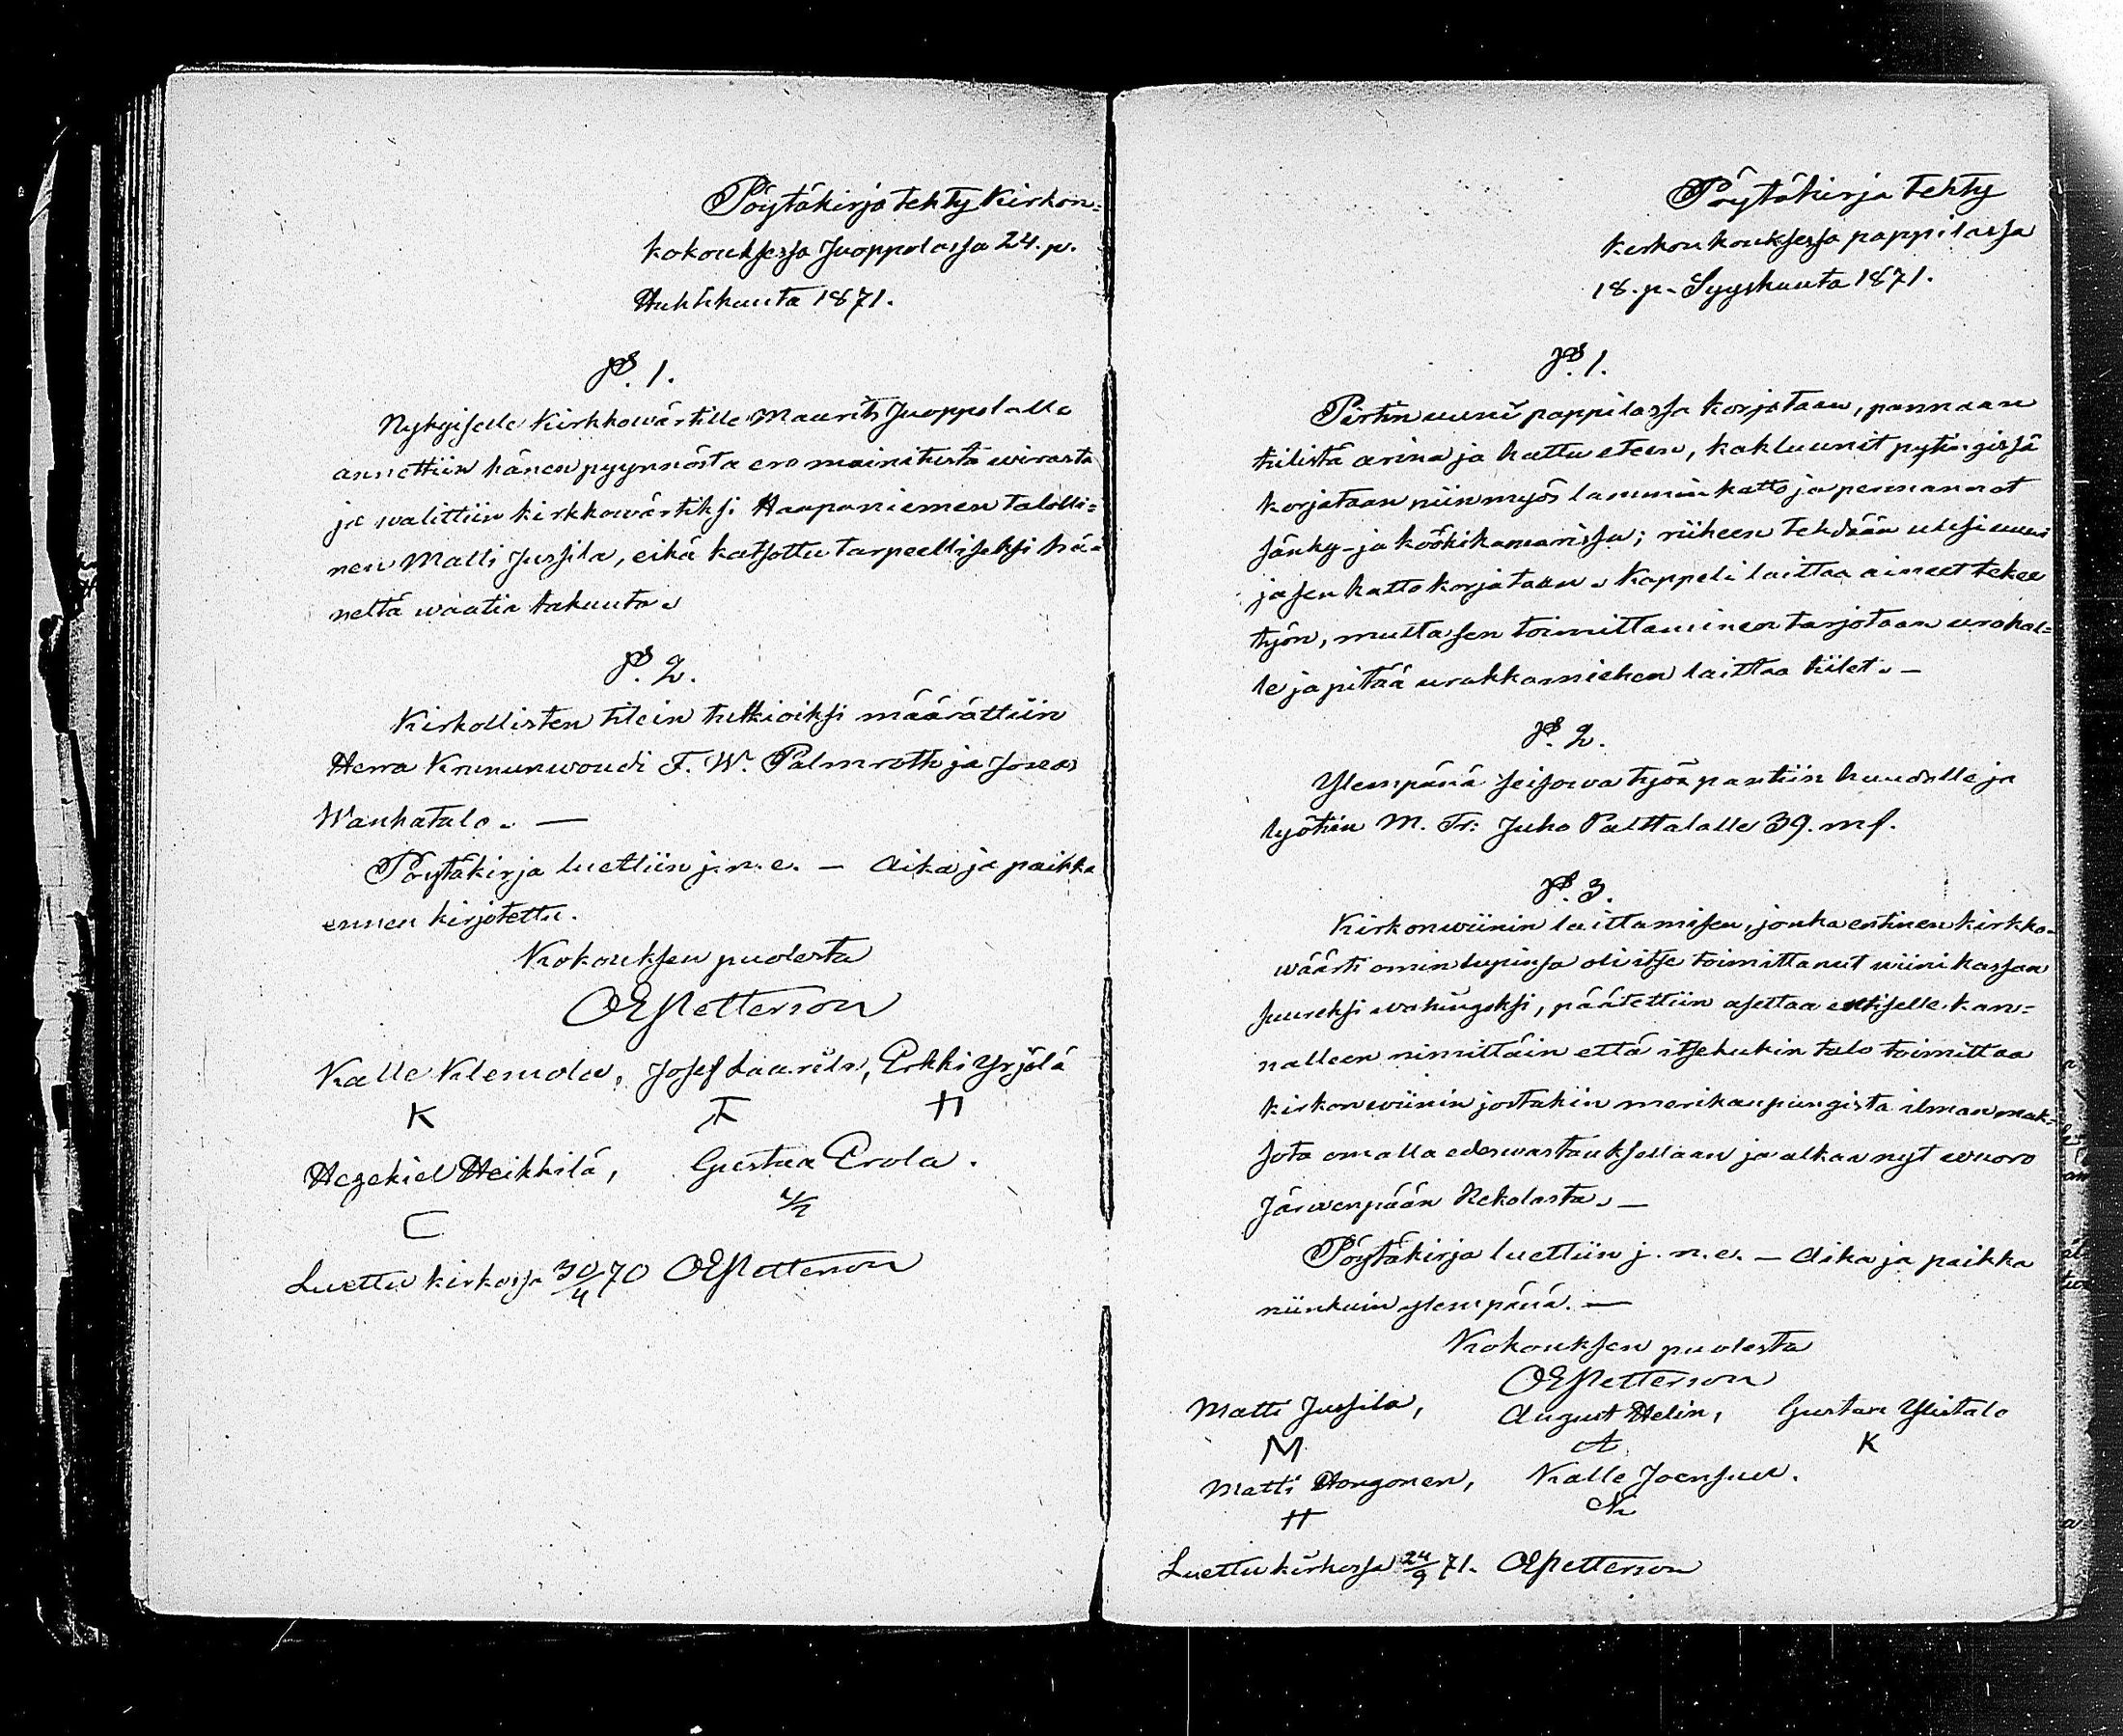 Pöytäkirja tehty Kirkon-
kokouksessa Juoppolassa 24. p.
Huhtikuuta 1871.
§. 1.
Nykyiselle Kirkkowärtille Maurits Juoppolalle
annettiin hänen pyynnöstä ero mainitusta wirasta
ja walittiin kirkkowärtiksi Haapaniemen talolli-
nen Matti Jussila, eikä katsottu tarpeelliseksi hä-
neltä waatia takuuta.
§. 2.
Kirkollisten tilein tutkioiksi määrättiin
Herra Kruununwouti F. W. Palmroth ja Joseas
Wanhatalo. —
Pöytäkirja luettiin j. n. e. — Aika ja paikka
ennen kirjotettu.
Kokouksen puolesta
OEPetterson
Kalle Klemola, Josef Laurila, Erkki Yrjölä
K H
Hezekiel Heikkilä, Gustaa Erola.
C
Luettu kirkossa 30/4 70 OEPetterson
Pöytäkirja tehty
kirkonkouksessa pappilassa
18. p. Syyskuuta 1871.
§. 1.
Pirtin uuni pappilassa korjataan, pannaan
tiilistä arina ja hattu eteen, kakluunit pytingissä
korjataan niin myös lammin katto ja permannot
sänky- ja köökikamarissa; riiheen tehdään uusi uuni
ja sen katto korjataan. Kappeli laittaa aineet tekee
työn, mutta sen toimittaminen tarjotaan urakal-
le ja pitää urakkamiehen laittaa tiilet. —
§. 2.
Ylempänä seisowa työn pantiin huudolle ja
lyötiin M. Tr: Juho Palttalalle 39. mf.
§. 3.
Kirkonwiinin laittamisen, jonka entinen kirkko-
wäärti omin lupinsa oli itse toimittanut wiinikassan
suureksi wahingoksi, päätettiin asettaa entiselle kan-
nalleen nimittäin että itsekukin talo toimittaa
kirkonwiinin jostakin merikaupungista ilman mak-
sota omalla edeswastauksellaan ja alkaa nyt wuoro
Järwenpään Rekolasta. —
Pöytäkirja luettiin j. n. e. — Aika ja paikka
niinkuin ylempänä. —
Kokouksen puolesta
OEPetterson
Matti Jussila, August Helin, Gustaa Ylitalo
M A K
Matti Hongonen, Kalle Joensuu.
H
Luettu kirkossa 24/9 71. OEPetterson